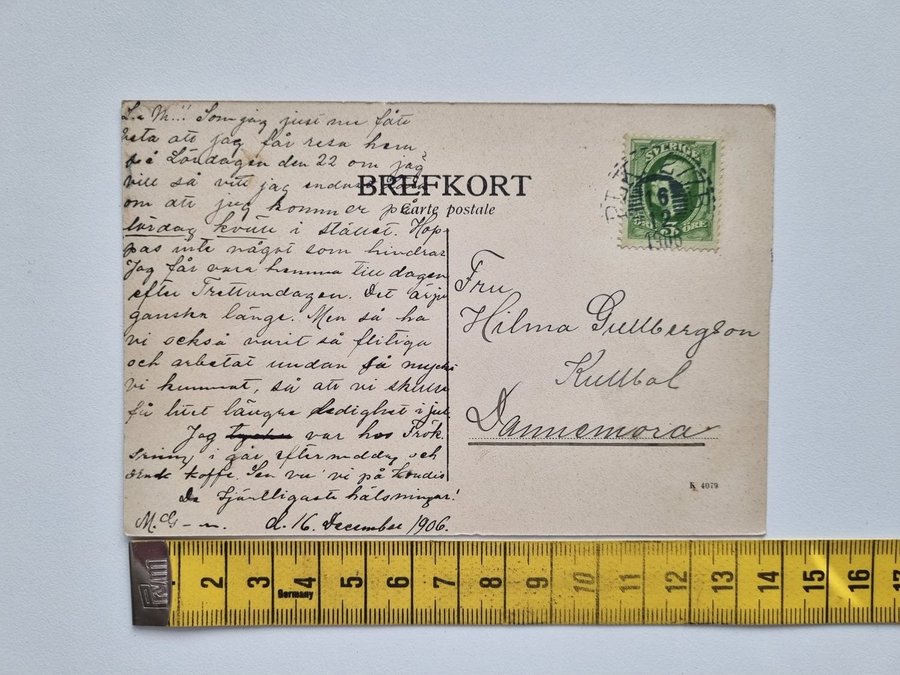 L. M!! Som jag just nu fått
veta att jag får resa hem
på Lördagen den 22 om jag
vill så vill jag endast
om att jag kommer på
lördag kväll i stället. Hop-
pas inte något som hindrar
Jag får vara hemma till dagen
efter Trettondagen. Det är ju
ganska länge. Men så ha
vi också varit så flitiga
och arbetat undan så mycket
vi kunnat, så att vi skulle
få litet längre ledighet i jul.
Jag var hos Frök.
i går eftermiddag och
kaffe. Sen vi på kondis
De hjärtligaste hälsningar!
M. G-n. d. 16. December 1906.
BREFKORT
Carte postale
SVERIGE
5 ÖRE
1906
Fru
Hilma Gullbergson
Kullbol
Dannemora
K 4079
1 2 3 4 5 6 7 8 9 10 11 12 13 14 15 16 17
Germany